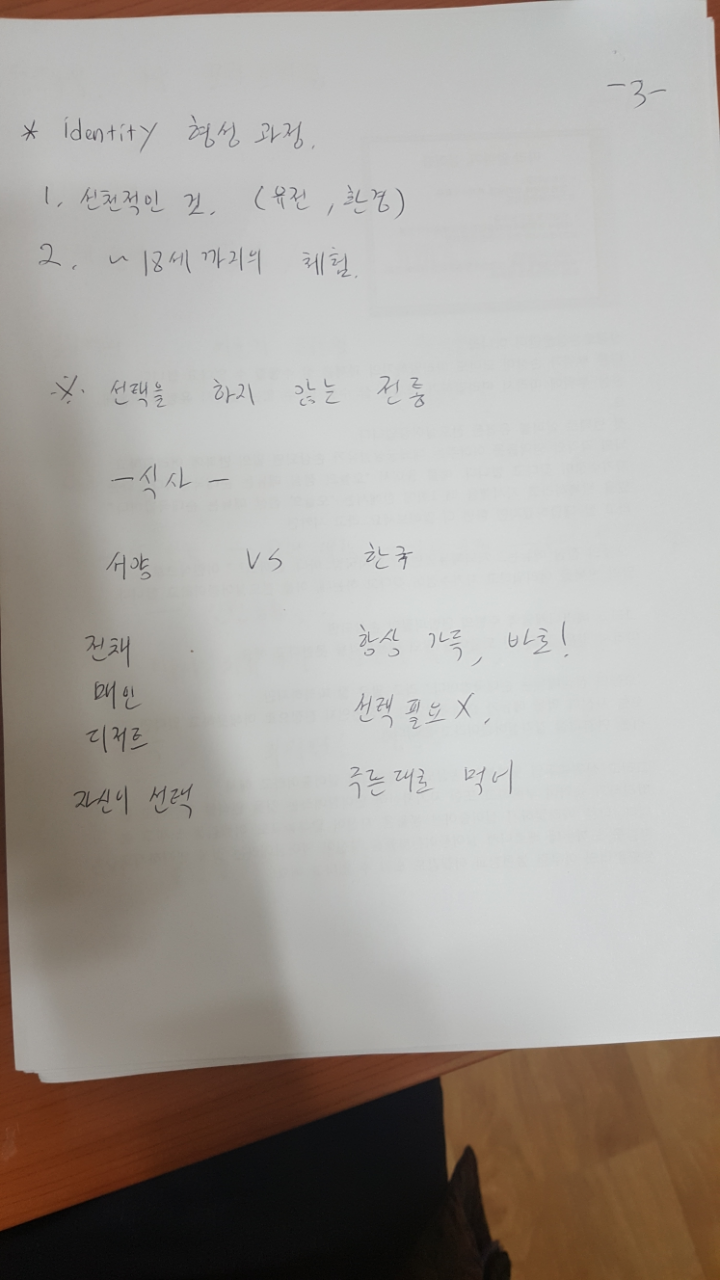 -3-
* identity 형성 과정.
1. 선천적인 것. (유전, 환경)
2. ~18세까지의 체험.
※ 선택을 하지 않는 전통
- 식사 -
서양 VS 한국
전채 항상 가득, 바로!
메인 선택 필요 X.
디저트
자신이 선택 주는대로 먹어